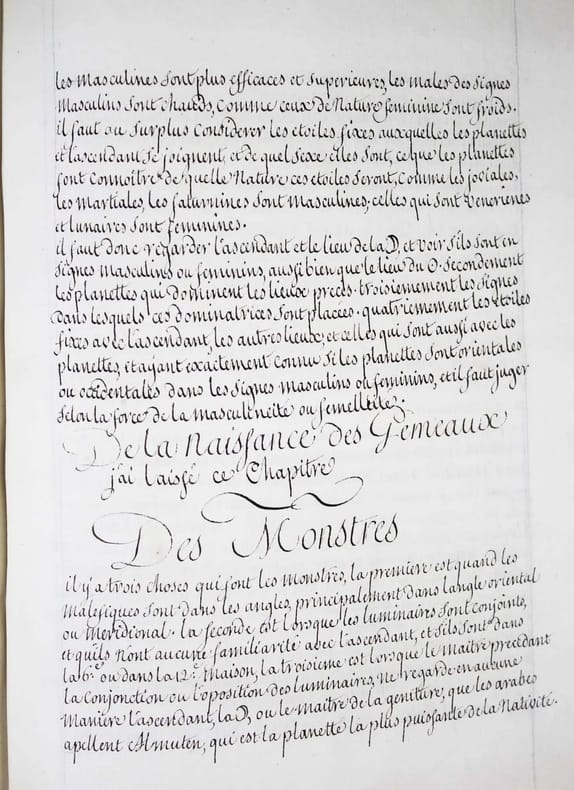 les masculines sont plus efficaces et superieures, les males des signes
masculins sont chauds, comme ceux de Nature feminine sont froids.
il faut au surplus considerer les etoiles fixes auxquelles les planettes
et l'ascendant se joignent, et de quel sexe elles sont, ce que les planettes
font connoître de quelle Nature ces etoiles seront, comme les joviales.
les martiales, les saturnines sont masculines, celles qui sont venerienes
et lunaires sont feminines.
il faut donc regarder l'ascendant et le lieu de la ☽, et voir s'ils sont en
signes masculins ou feminins, aussi bien que le lieu du ☉. secondement
les planettes qui dominent les lieux preces. troisiemement les signes
dans lesquels ces dominatrices sont placées. quatriemement les etoiles
fixes avec l'ascendant, les autres lieux, et celles qui sont aussi avec les
planettes, et ayant exactement connu si les planettes sont orientales
ou occidentales dans les signes masculins ou feminins, et il faut juger
selon la force de la masculeneité ou femelleité.
De la naissance des Gemeaux
j'ai laissé ce Chapitre
Des Monstres
il y'a trois choses qui font les monstres, la premiere est quand les
malefiques sont dans les angles, principalement dans l'angle oriental
ou meridional. la seconde est lorsque les luminaires sont conjoints,
et qu'ils n'ont aucune familiarité avec l'ascendant, et s'ils sont dans
la 6e. ou dans la 12e. maison, la troisieme est lorsque le maitre precedant
la conjonction ou l'oposition des luminaires, ne regarde en aucune
maniere l'ascendant, la ☽, ou le maitre de la geniture, que les arabes
apellent Almuten, qui est la planette la plus puissante de la Nativité.